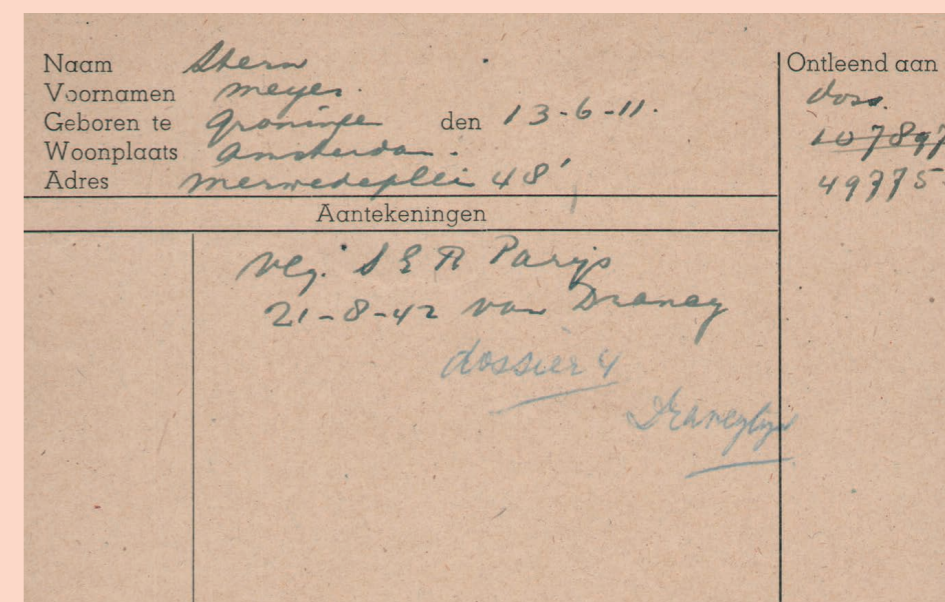 Naam Stern
Voornamen Meyer.
Geboren te Groningen den 13-6-11.
Woonplaats Amsterdam.
Adres Merwedeplein 48'
Ontleend aan
doss.
107891
49775
Aantekeningen
Vlg. S E R Parijs
21-8-42 van Drancy
dossier 4
Drancylijst